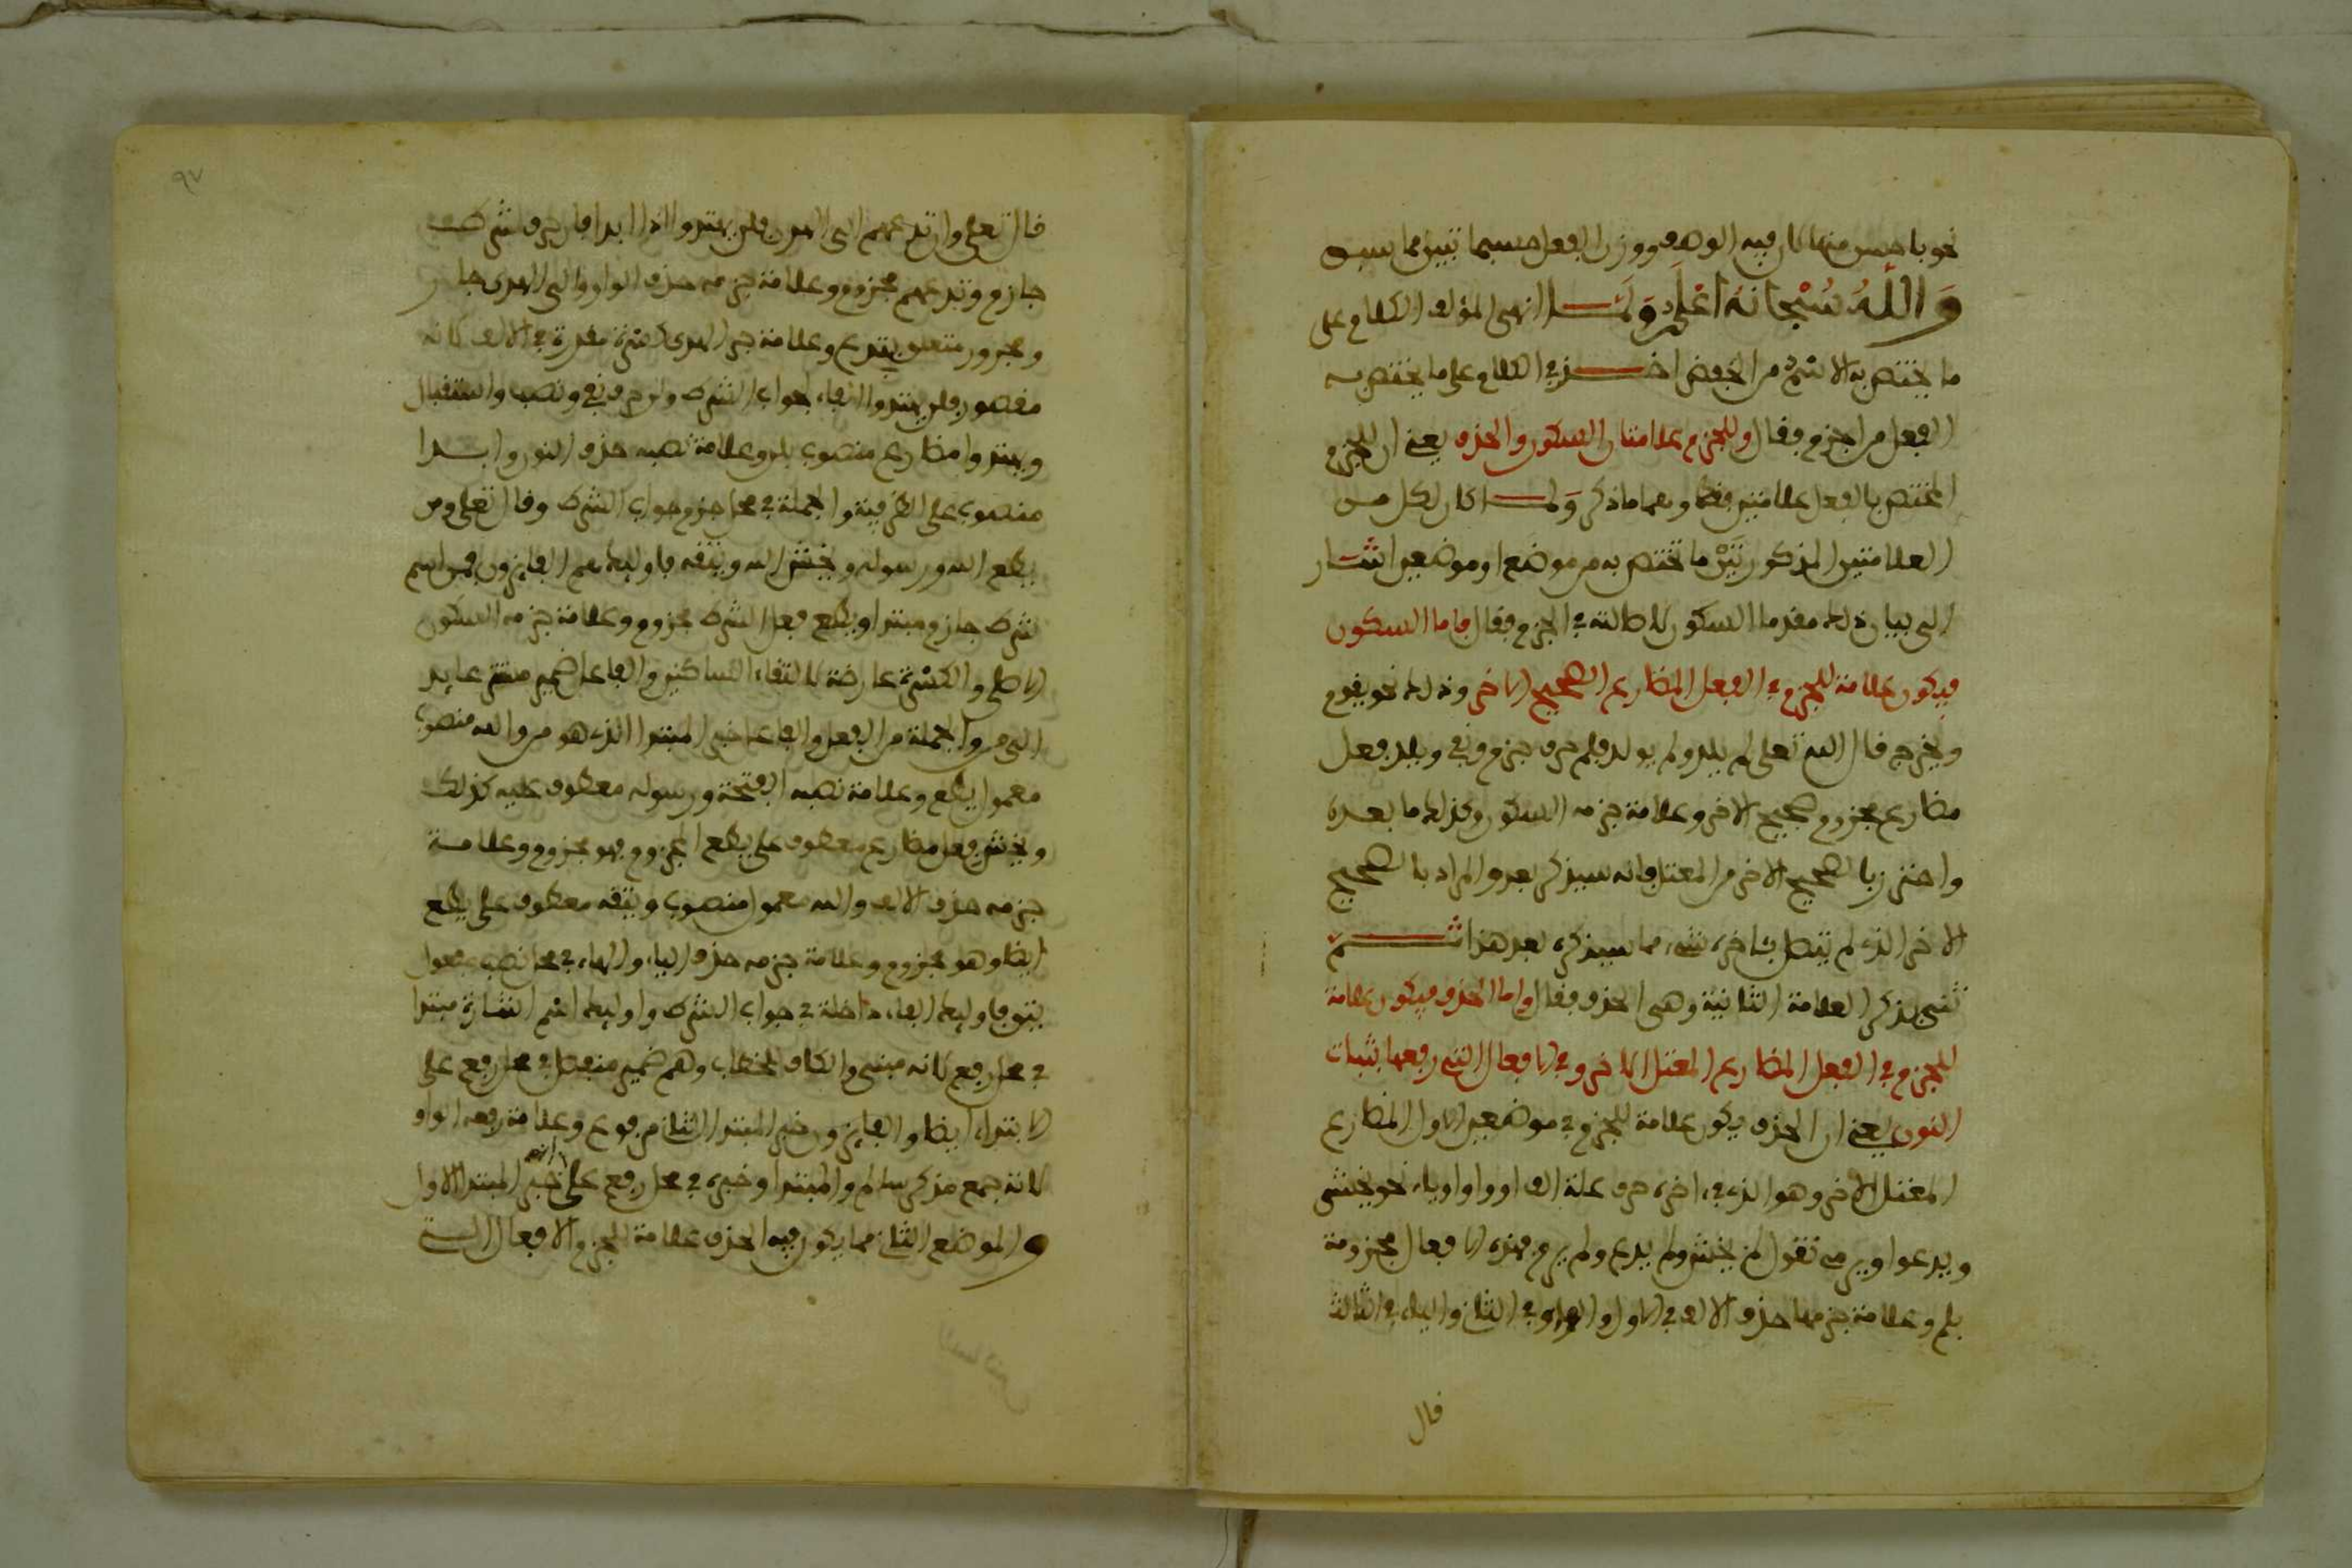 نحو باحسن منها كان فيه الوصف ووزن الفعل حسبما تبين مما سبق
وَاللَّهُ سُبْحَانَهُ أَعْلَم وَلَمَّا انهى المؤلف الكلام على
ما يختص به الاسم من الخفض اخذ في الكلام على ما يختص به
الفعل من الجزم فقال وللجزم علامتان السكون والحذف يعني ان للجزم
المختص بالفعل علامتين فقط وهما ما ذكر وَلما كان لكل من
العلامتين المذكورتين ما تختص به من موضع او موضعين اشار
الى بيان ذلك مقدما السكون لاصالته في الجزم فقال فاما السكون
فيكون علامة للجزم في الفعل المضارع الصحيح الاخر وذلك نحو يقوم
ويخرج قال الله تعلى لم يلد ولم يولد فلم حرف جزم ونفي ويلد فعل
مضارع مجزوم صحيح الاخر وعلامة جزمه السكون وكذلك ما بعده
واحترز بالصحيح الاخر من المعتل فانه سيذكر بعد والمراد بالصحيح
الاخر الذي لم يتصل باخره شيء مما سيذكره بعد هذا ثم
ثنى بذكر العلامة الثانية وهي الحذف فقال واما الحذف فيكون علامة
للجزم في الفعل المضارع المعتل الاخر وفي الافعال التي رفعها بثبات
النون يعني ان الحذف يكون علامة للجزم في موضعين الاول المضارع
المعتل الاخر وهو الذي في اخره حرف علة الف او واو او ياء نحو يخشى
ويدعوا ويرمي تقول لم يخش ولم يدع ولم يرم فهذه الافعال مجزومة
بلم وعلامة جزمها حذف الالف في الاول والواو في الثاني والياء في الثالث
قال
٩٧
قال تعلى وان تدعهم الى الهدى فلن يهتدوا اذا ابدا فان حرف شرط
جازم وتدعهم مجزوم وعلامة جزمه حذف الواو والى الهدى جار
ومجرور متعلق بتدع وعلامة جر الهدى كسرة مقدرة في الالف لانه
مقصور فلن يهتدوا الفاء لجواب الشرط ولن حرف نفي ونصب واستقبال
ويهتدوا مضارع منصوب بلن وعلامة نصبه حذف النون وابدا
منصوب على الظرفية والجملة في محل جزم جواب الشرط وقال تعلى ومن
يطع الله ورسوله ويخش الله ويتقه فاوليك هم الفايزون فمن اسم
شرط جازم مبتدا ويطع فعل الشرط مجزوم وعلامة جزمه السكون
الاصلي والكسرة عارضة لالتقاء الساكنين والفاعل ضمير مستتر عايد
الى من والجملة من الفعل والفاعل خبر المبتدا الذي هو من والله منصوب
معمول يطع وعلامة نصبه الفتحة ورسوله معطوف عليه كذلك
ويخش فعل مضارع معطوف على يطع المجزوم فهو مجزوم وعلامة
جزمه حذف الالف والله معمول منصوب ويتقه معطوف على يطع
ايضا وهو مجزوم وعلامة جزمه حذف الياء والهاء في محل نصب مفعول
يتق فاوليك الفاء داخلة في جواب الشرط واوليك اسم اشارة مبتدا
في محل رفع لانه مبني والكاف للخطاب وهم ضمير منفصل في محل رفع على
الابتداء ايضا والفايزون خبر المبتدا الثاني مرفوع وعلامة رفعه الواو
لانه جمع مذكر سالم والمبتدا وخبره في محل رفع على انه خبر المبتدا الاول
والموضع الثاني مما يكون فيه الحذف علامة للجزم الافعال الستة